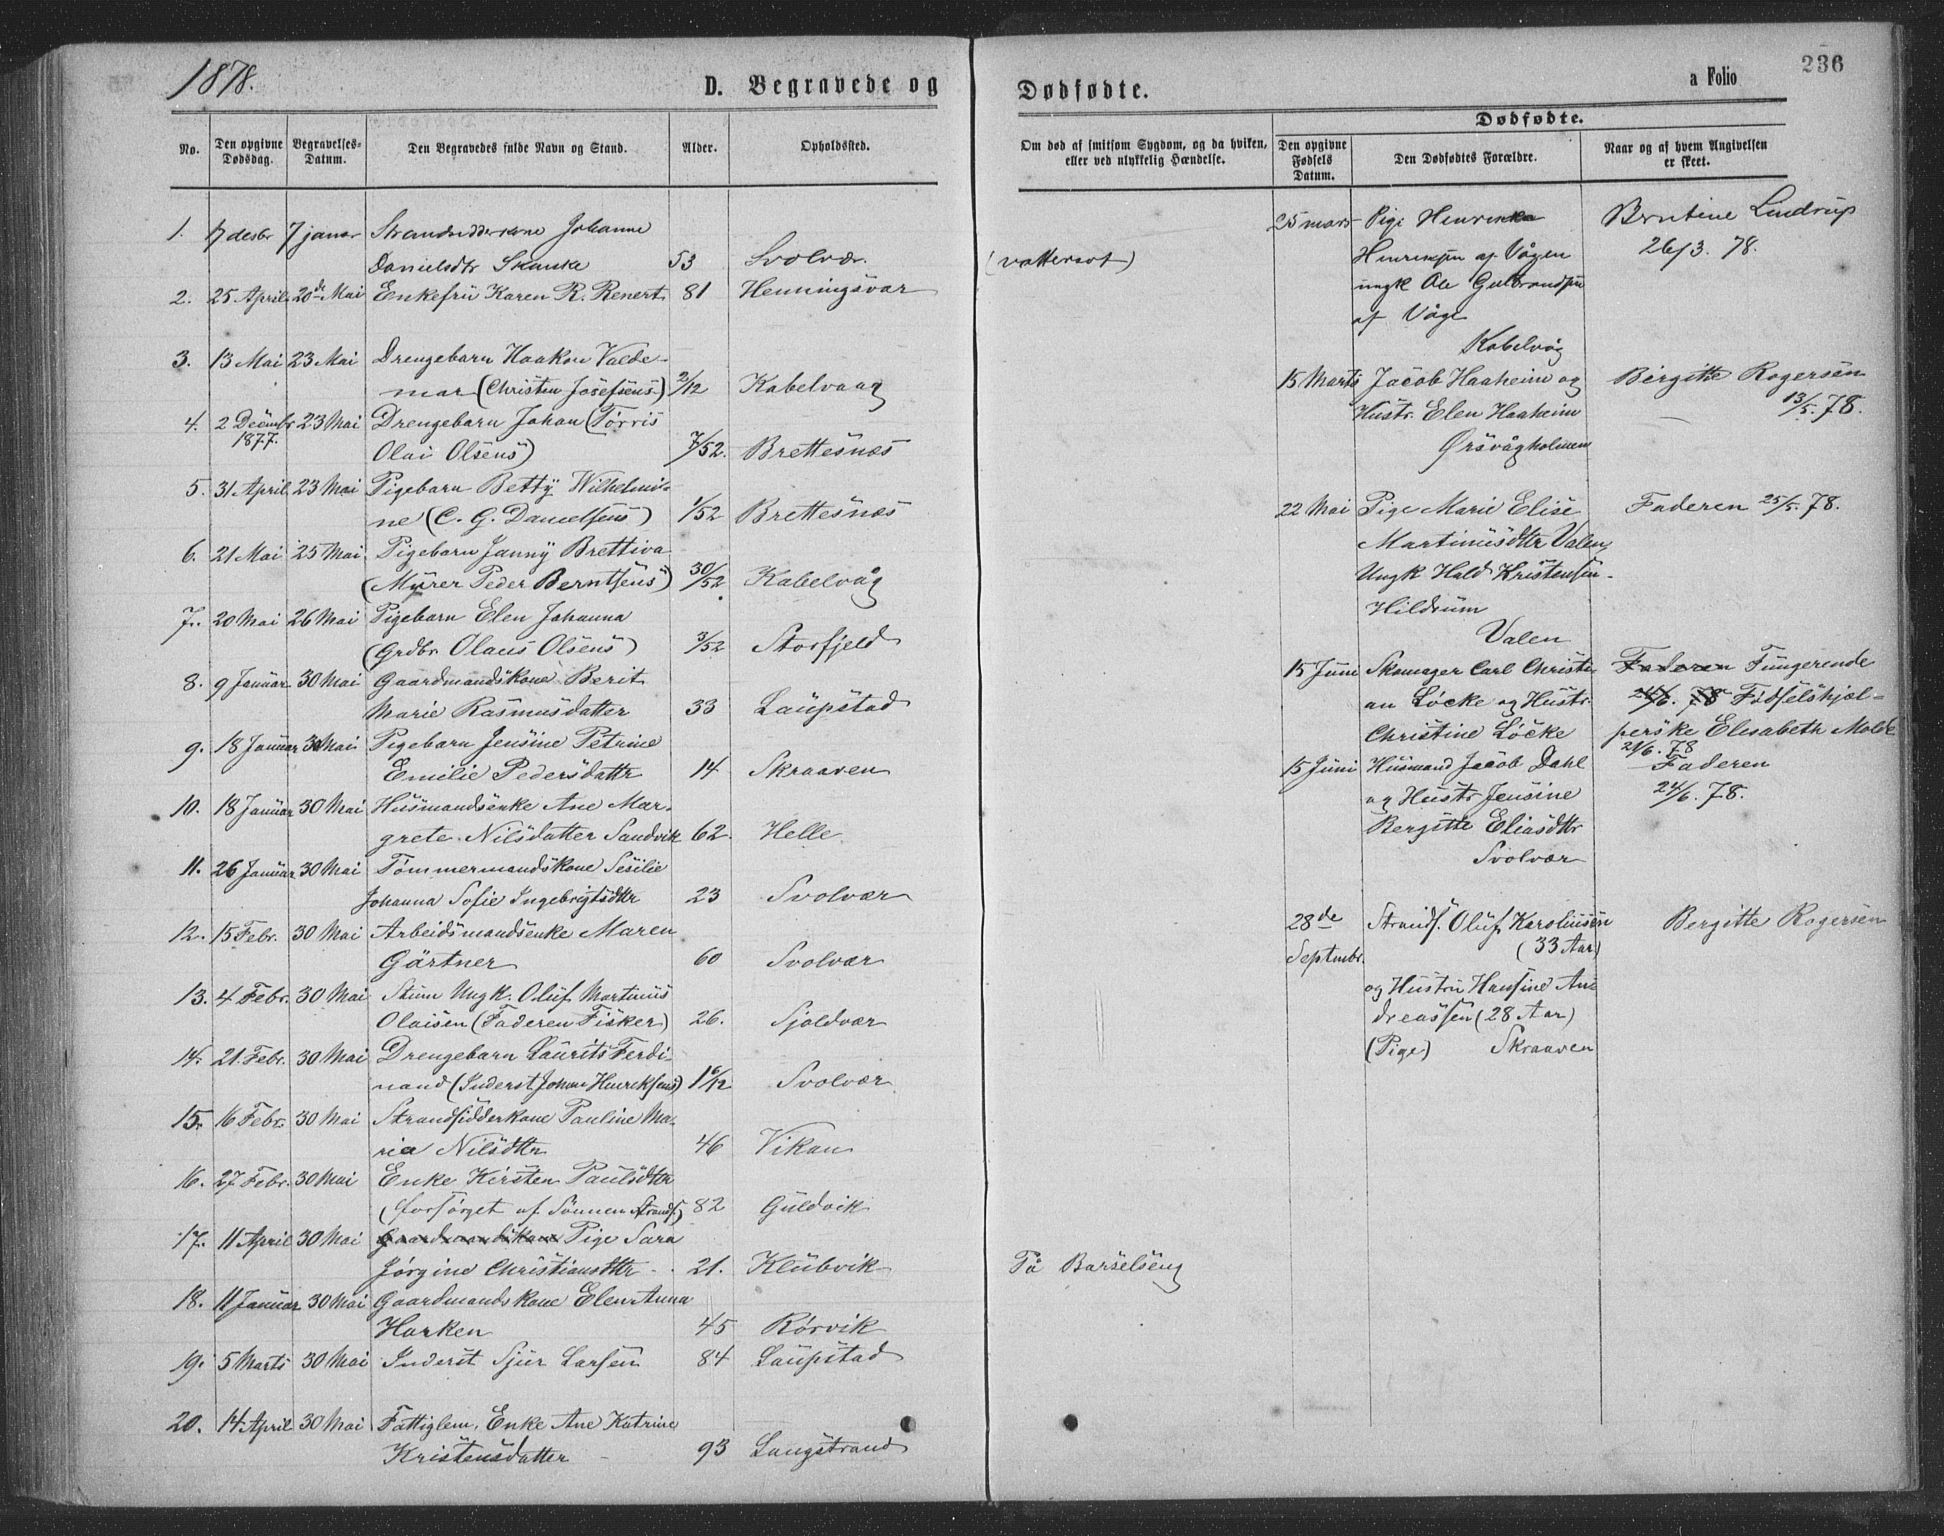 1878.
D. Begravede og
Dødfødte.
a Folio
236
No.
Den opgivne Dødsdag.
Begravelses-Datum.
Den Begravedes fulde Navn og Stand.
Alder.
Opholdssted.
Om død af smitsom Sygdom, og da hvilken,
eller ved ulykkelig Hændelse.
Dødfødte.
Den opgivne Fødsels Datum.
Den Dødfødtes Forældre.
Naar og af hvem Angivelsen er skeet.
1. 7 desbr 7 januar Johanne
Danielsdtr Skanke 53 Svolvær. (vattersot)
2. 25 April 20de Mai Enkefru Karen R. Renert 81 Henningsvær
3. 13 Mai 23 Mai Drengebarn Haakon Valde-
mar (Christen Josefsens) 2/12 Kabelvaag
4. 2 Decmbr 1877. 23 Mai Drengebarn Johan (Torris
Olai Olsens) 7/52. Brettesnæs
5. 31 April 23 Mai Pigebarn Betty Wilhelmi-
ne (C. G. Danielsens) 1/52 Brettesnæs
6. 21 Mai 25 Mai Pigebarn Janny Brettiva
(Murer Peder Berntsens) 30/52 Kabelvåg
7. 20 Mai 26 Mai Pigebarn Elen Johanna
(Grdbr Olaus Olsens) 3/52 Storfjeld
8. 9 Januar 30 Mai Gaardmandskone Berit
Marie Rasmusdatter 33 Laupstad
9. 18 Januar 30 Mai Pigebarn Jensine Petrine
Emilie Pedersdattr 14 Skraaven
10. 18 Januar 30 Mai Husmandsenke Ane Mar-
grete Nilsdatter Sandvik 62. Helle
11. 26 Januar 30 Mai Tømmermandskone Sesilie
Johanna Sofie Ingebrigtsdttr 23 Svolvær
12. 15 Febr. 30 Mai Arbeidsmandsenke Maren
Gärtner 60 Svolvær
13. 4 Febr. 30 Mai Ungk. Oluf Martinus
Olaisen (Faderen Fisker) 26. Sjoldvær
14. 21 Febr. 30 Mai Drengebarn Laurits Ferdi-
nand (Inderst Johan Henriksens) 1 6/12 Svolvær
15. 16 Febr. 30 Mai Strandsidderkone Pauline Ma-
ria Nilsdttr 46 Vikan
16. 27 Febr. 30 Mai Enke Kirsten Paulsdttr
(forsørget af Sønnen Strands.) 82 Guldvik
17. 11 April 30 Mai Gaardmandskone Pige Sara
Jørgine Christiansdttr 21. Klubvik På Barselseng
18. 11 Januar 30 Mai Gaardmandskone Elen Anna
Harken 45 Rørvik
19. 5 Marts 30 Mai Inderst Sjur Larsen 84 Laupstad
20. 14 April 30 Mai Fattiglem. Enke Ane Katrine
Kristensdatter 93 Langstrand
25 mars Pige Henrikka Berntine Lindrup
Henriksen af Vågen 26/3. 78.
ungk Ole Gulbrandsen
af Våge
Kabelvåg
15 Marts Jacob Haaheim og Birgitte Rogersen
Hustr. Elen Haaheim 13/5. 78.
Ørsvågholmen
22 Mai Pige Marie Elise Faderen 25/5. 78.
Martinusdttr Valen
Ungk Hald Kristensen
Hildrum
Valen
15 Juni Skomager Carl Christi- Faderen Fungerende
an Løcke og Hustr 24/6. 78 Fødselshjæl-
Christine Løcke perske Elisabeth Molde
21/6. 78
15 Juni Husmand Jacob Dahl Faderen
og Hustr Jensine 24/6. 78.
Bergitte Eliasdttr
Svolvær
28de Septmbr. Strands. Oluf Karoliusen Bergitte Rogersen
(33 Aar)
og Hustru Hansine An-
dreassen (28 Aar)
(Pige) Skraaven